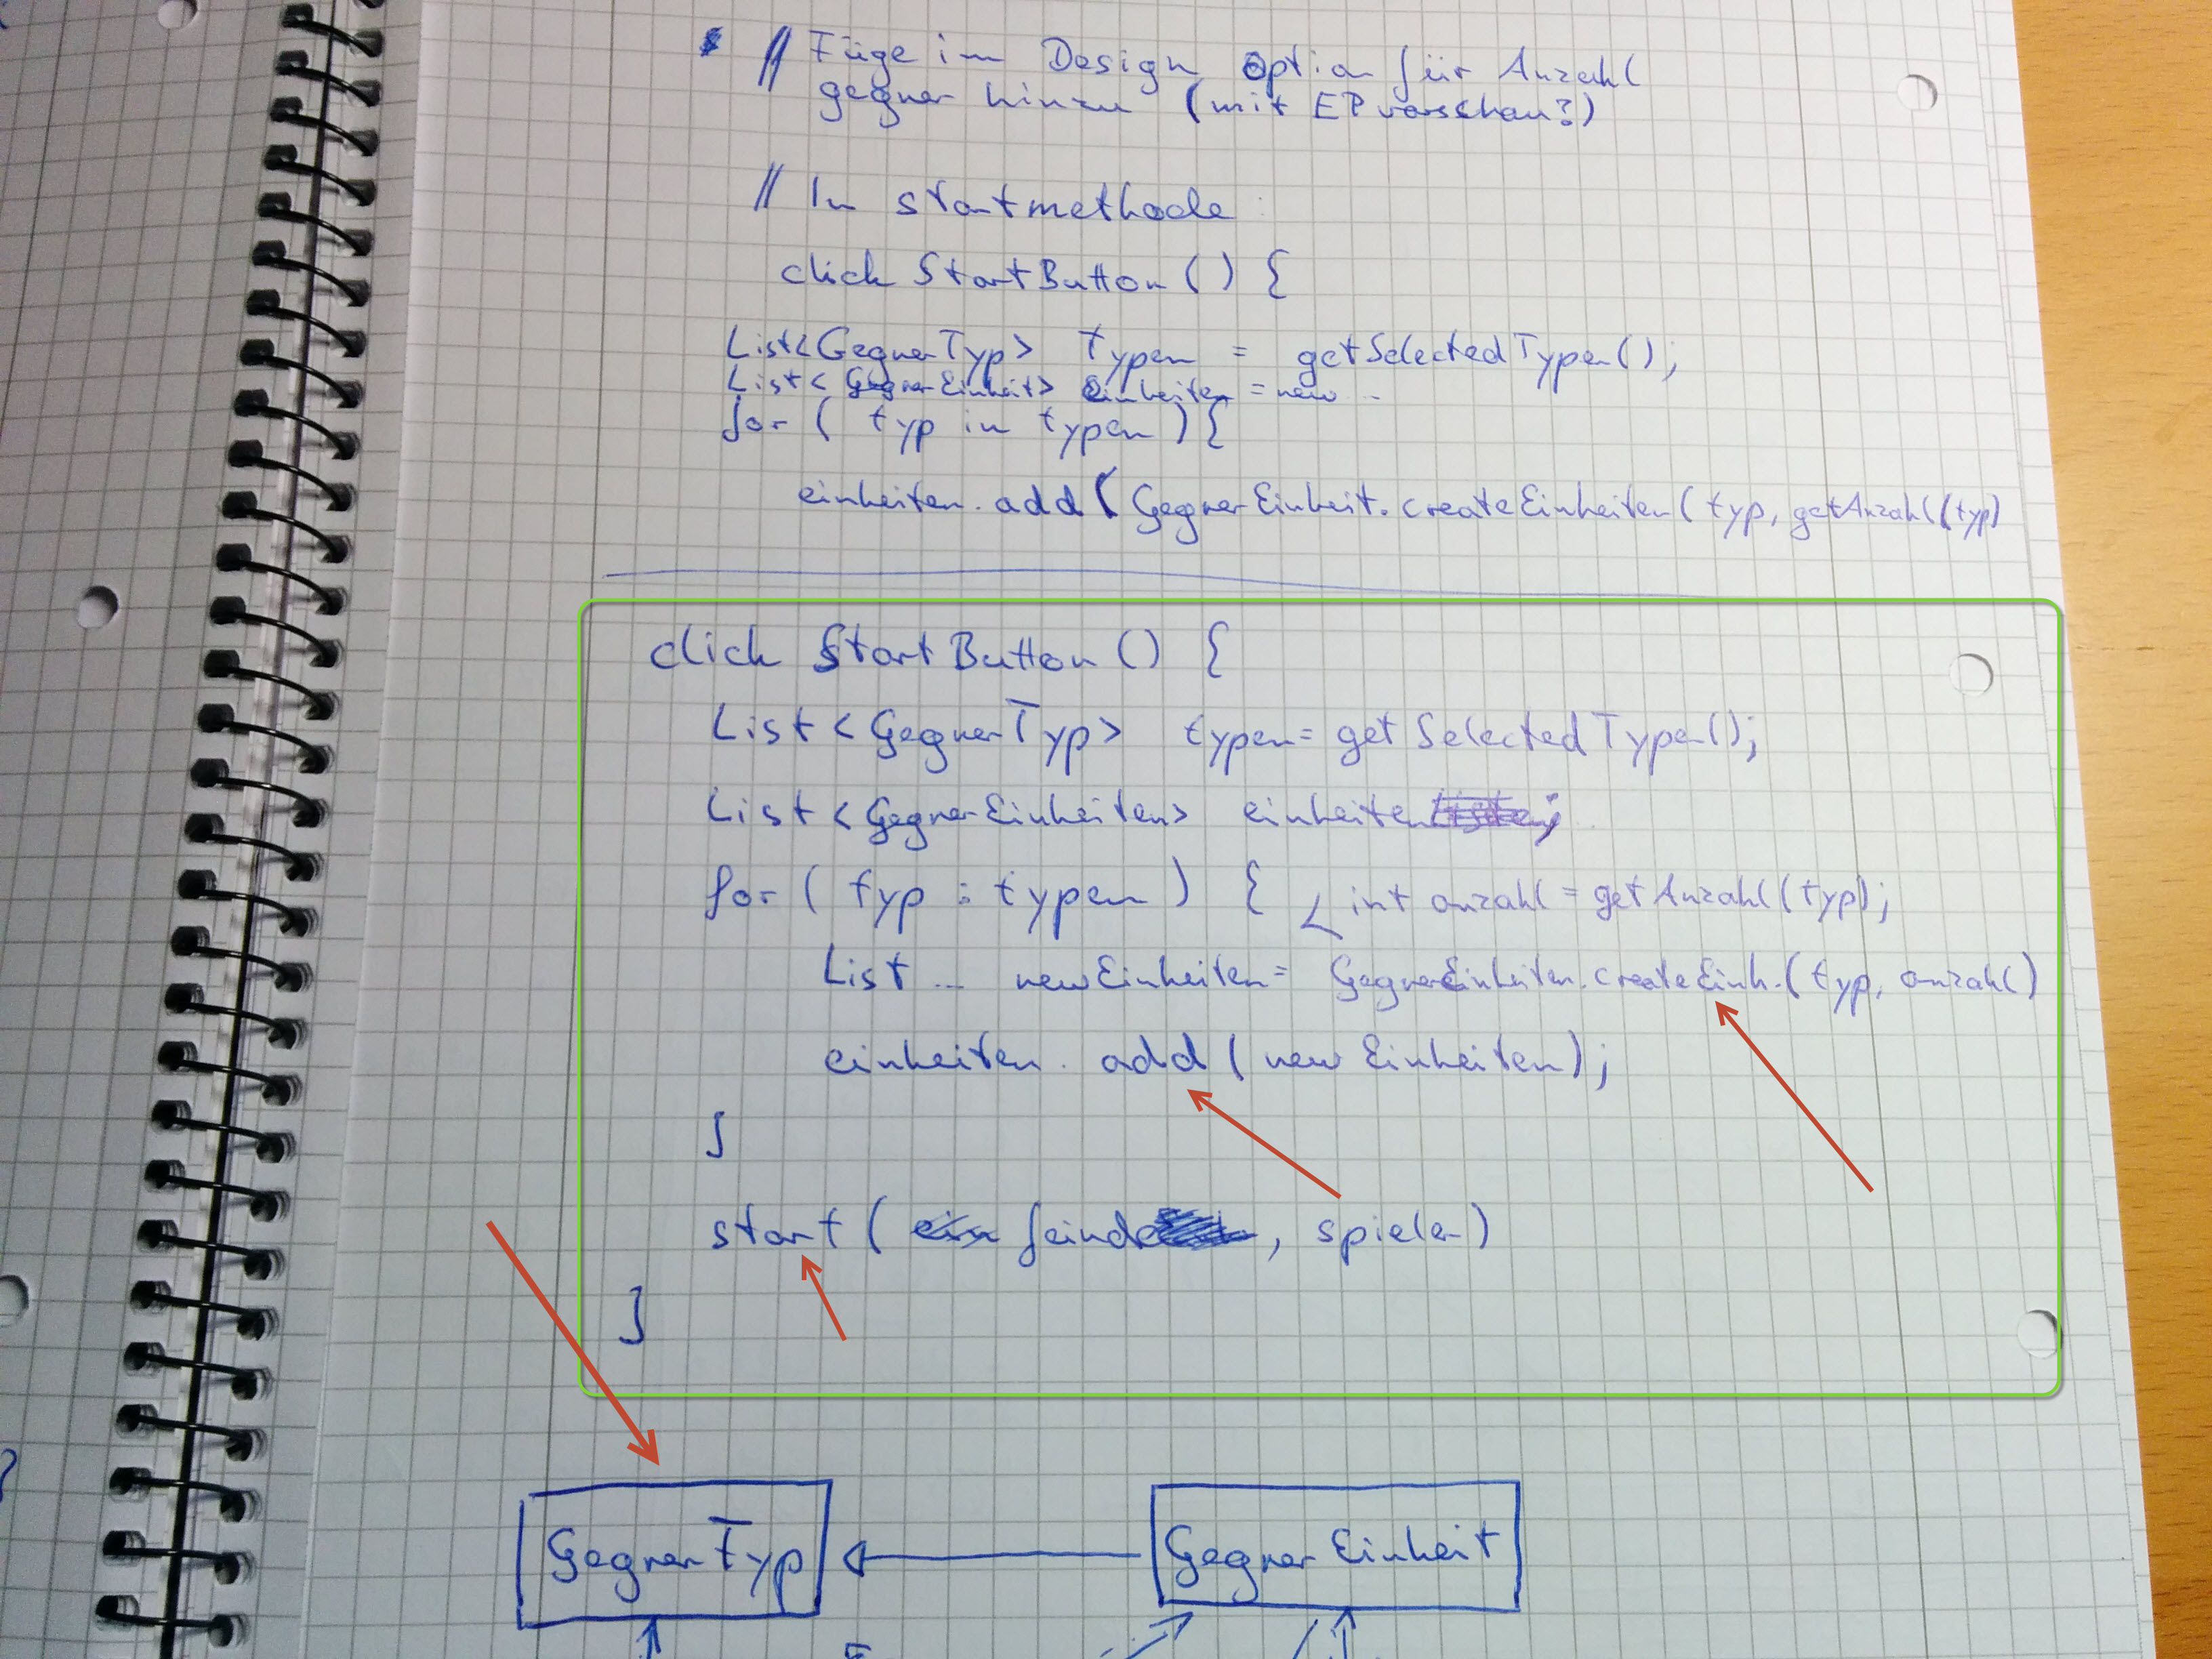 // Füge im Design Option für Anzahl
gegner hinzu (mit EP vorschau?)
// In startmethode
click StartButton () {
List<GegnerTyp> typen = getSelectedTypen();
List<GegnerEinheit> Einheiten = new ...
for ( typ in typen ) {
einheiten.add ( GegnerEinheit.createEinheiten ( typ, getAnzahl (typ)
click StartButton () {
List < GegnerTyp > typen = get Selected Typen();
List < GegnerEinheiten > einheiten ;
for ( typ : typen ) { int anzahl = getAnzahl (typ);
List ... newEinheiten = GegnerEinheiten.createEinh. ( typ, anzahl ()
einheiten. add ( new Einheiten );
}
start ( feinde , spieler )
}
GegnerTyp
Gegner Einheit